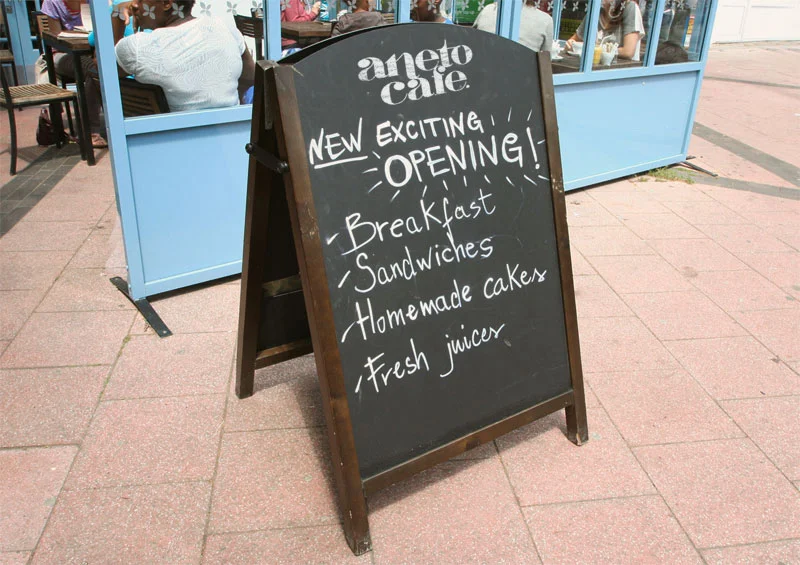 aneto
cafe
NEW EXCITING
OPENING!
- Breakfast
- Sandwiches
- Homemade cakes
- Fresh juices